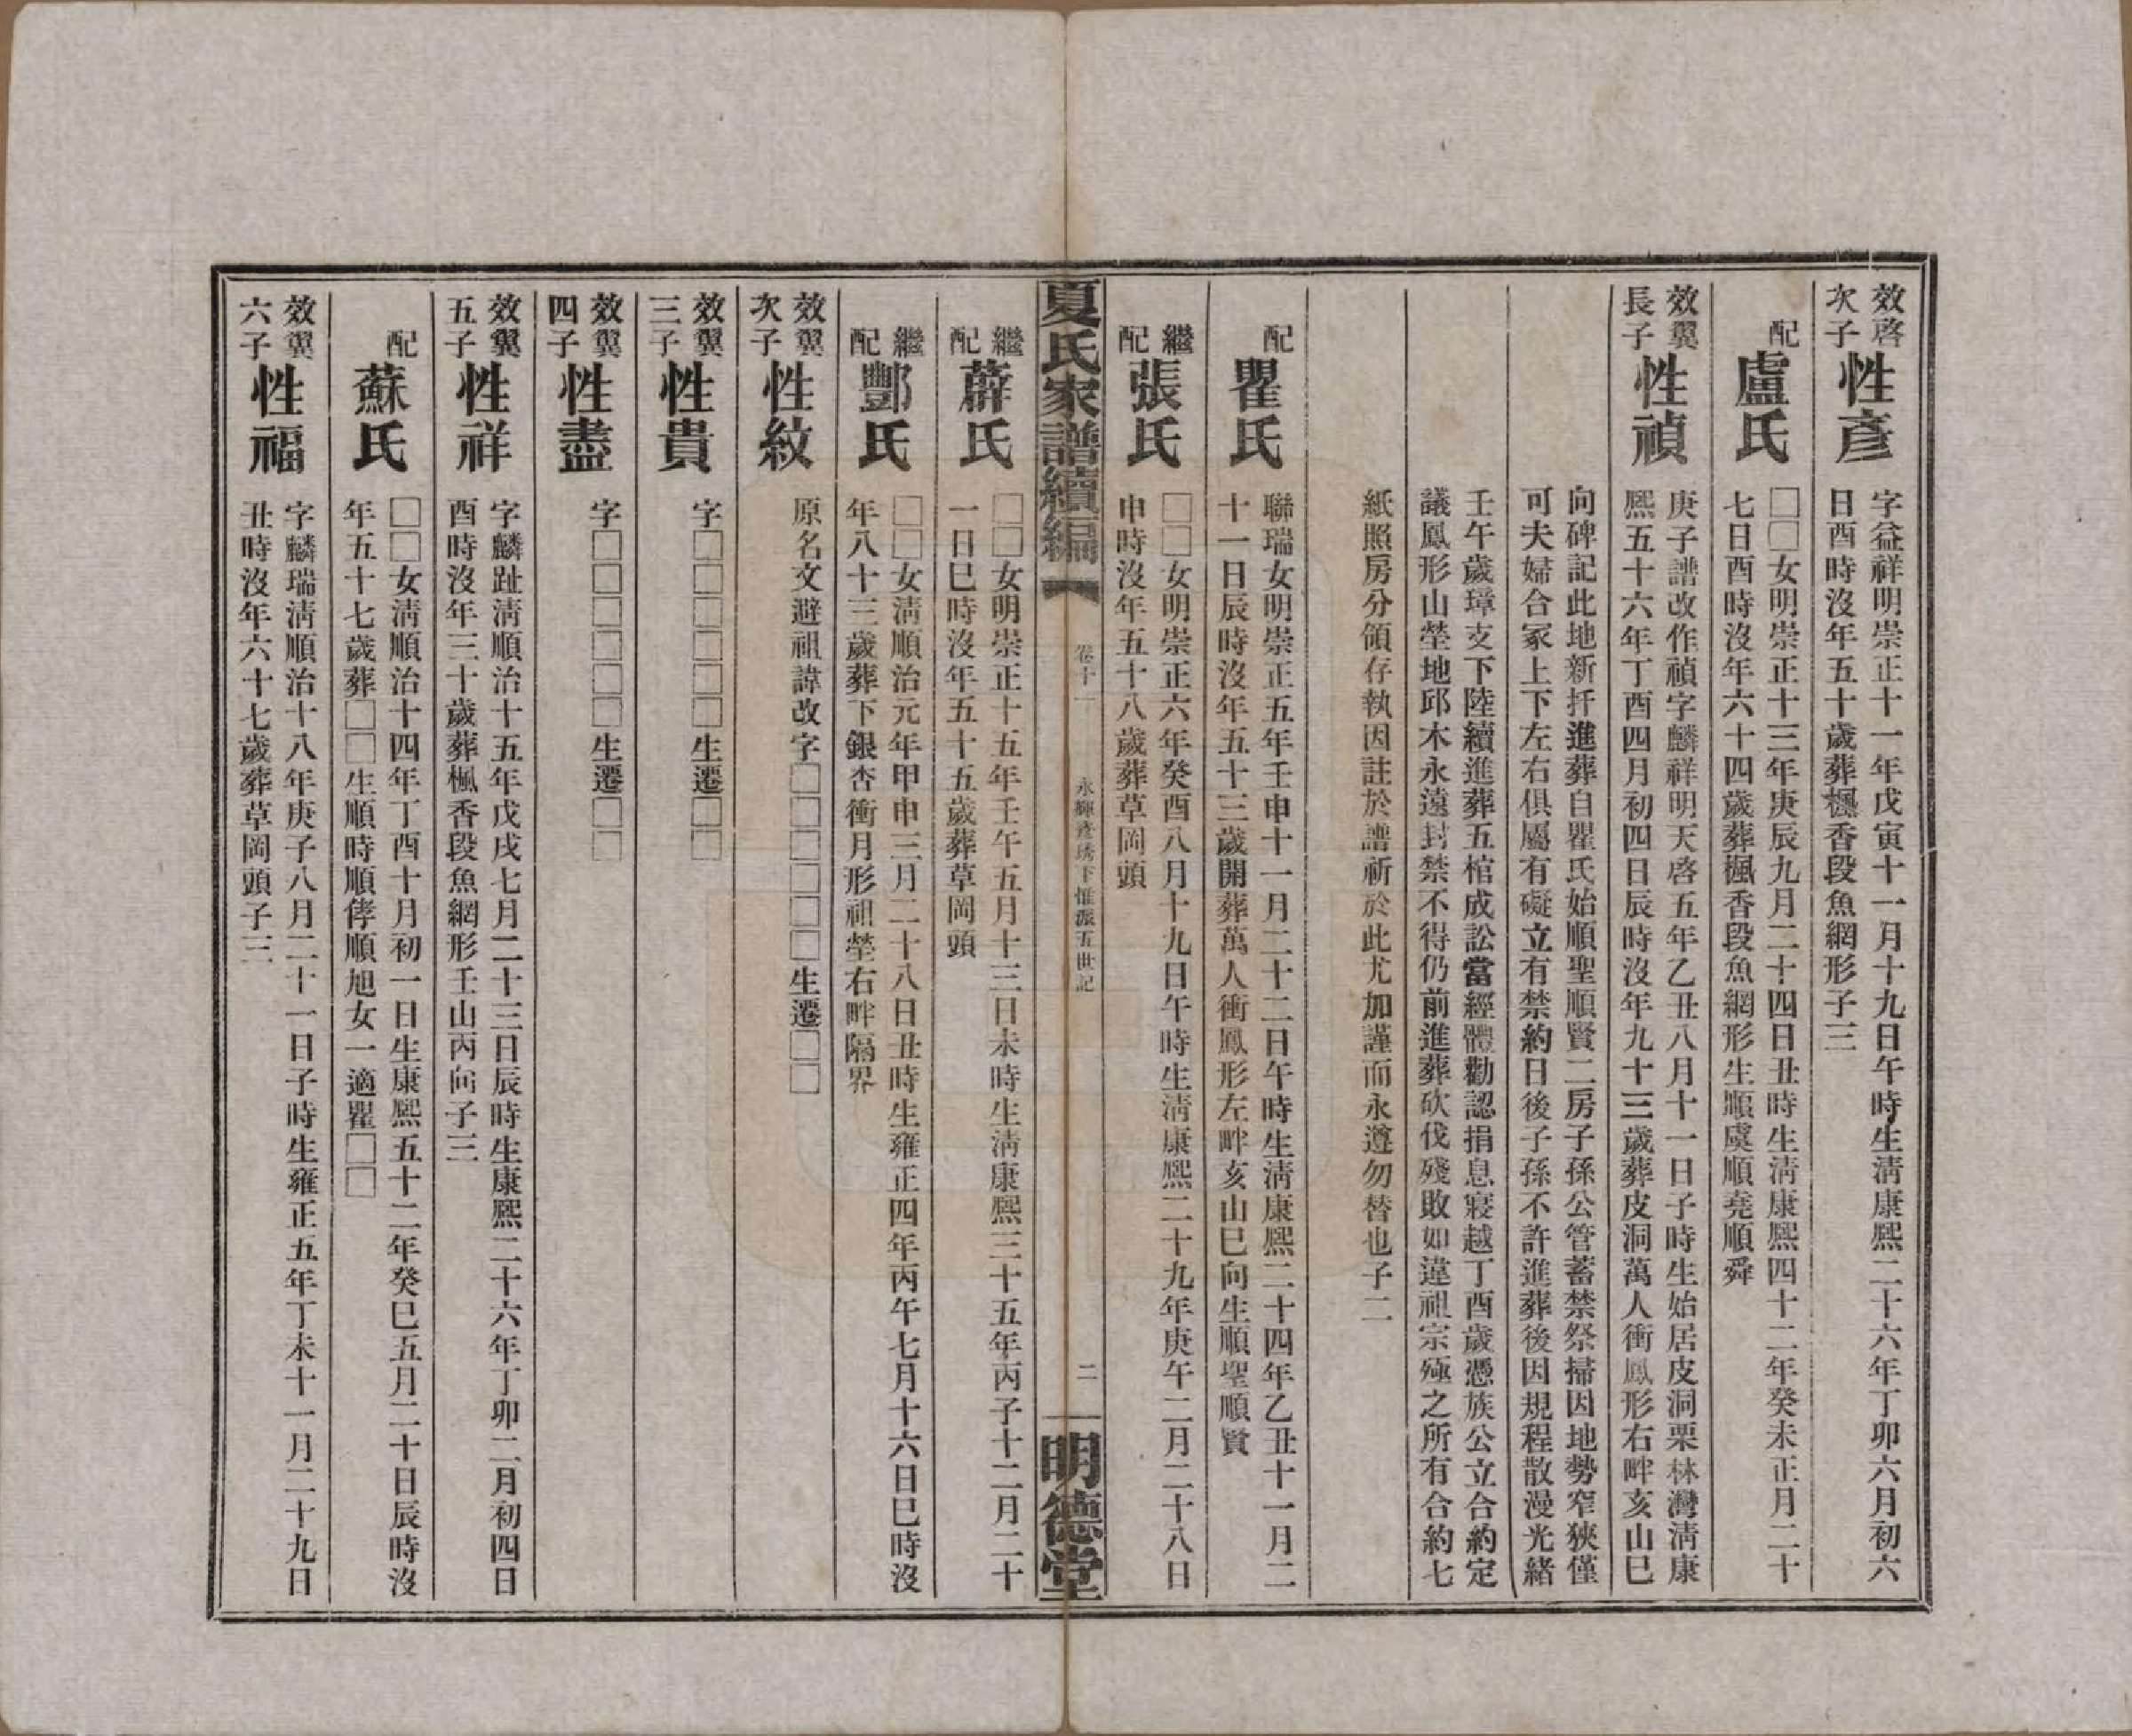 效啓
次子
性彥
字益祥明崇正十一年戊寅十一月十九日午時生淸康熙二十六年丁卯六月初六
日酉時沒年五十歲葬楓香段魚網形子三
配
盧氏
□□女明崇正十三年庚辰九月二十四日丑時生淸康熙四十二年癸未正月二十
七日酉時沒年六十四歲葬楓香段魚網形生順虞順堯順舜
效翼
長子
性禎
庚子譜改作禎字麟祥明天啓五年乙丑八月十一日子時生始居皮洞栗林灣淸康
熙五十六年丁酉四月初四日辰時沒年九十三歲葬皮洞萬人衝鳳形右畔亥山巳
向碑記此地新扦進葬自瞿氏始順聖順賢二房子孫公管蓄禁祭掃因地勢窄狹僅
可夫婦合冢上下左右俱屬有礙立有禁約日後子孫不許進葬後因規程散漫光緒
壬午歲璋支下陸續進葬五棺成訟當經體勸認捐息寢越丁酉歲憑族公立合約定
議鳳形山塋地邱木永遠封禁不得仍前進葬砍伐殘敗如違祖宗殛之所有合約七
紙照房分領存執因註於譜祈於此尤加謹而永遵勿替也子二
配
瞿氏
聯瑞女明崇正五年壬申十一月二十二日午時生淸康熙二十四年乙丑十一月二
十一日辰時沒年五十三歲開葬萬人衝鳳形左畔亥山巳向生順聖順賢
繼
配
張氏
□□女明崇正六年癸酉八月十九日午時生淸康熙二十九年庚午二月二十八日
申時沒年五十八歲葬草岡頭
夏氏家譜續編
卷十一
永輝彥琇下惟派五世記
二
明德堂
繼
配
薜氏
□□女明崇正十五年壬午五月十三日未時生淸康熙三十五年丙子十二月二十
一日巳時沒年五十五歲葬草岡頭
繼
配
酆氏
□□女淸順治元年甲申三月二十八日丑時生雍正四年丙午七月十六日巳時沒
年八十三歲葬下銀杏衝月形祖塋右畔隔界
效翼
次子
性紋
原名文避祖諱改字□□□□□□生遷□□
效翼
三子
性貴
字□□□□□□生遷□□
效翼
四子
性盡
字□□□□□□生遷□□
效翼
五子
性祥
字麟趾淸順治十五年戊戌七月二十三日辰時生康熙二十六年丁卯二月初四日
酉時沒年三十歲葬楓香段魚網形壬山丙向子三
配
蘇氏
□□女淸順治十四年丁酉十月初一日生康熙五十二年癸巳五月二十日辰時沒
年五十七歲葬□□生順時順倖順旭女一適瞿□□
效翼
六子
性福
字麟瑞淸順治十八年庚子八月二十一日子時生雍正五年丁未十一月二十九日
丑時沒年六十七歲葬草岡頭子三